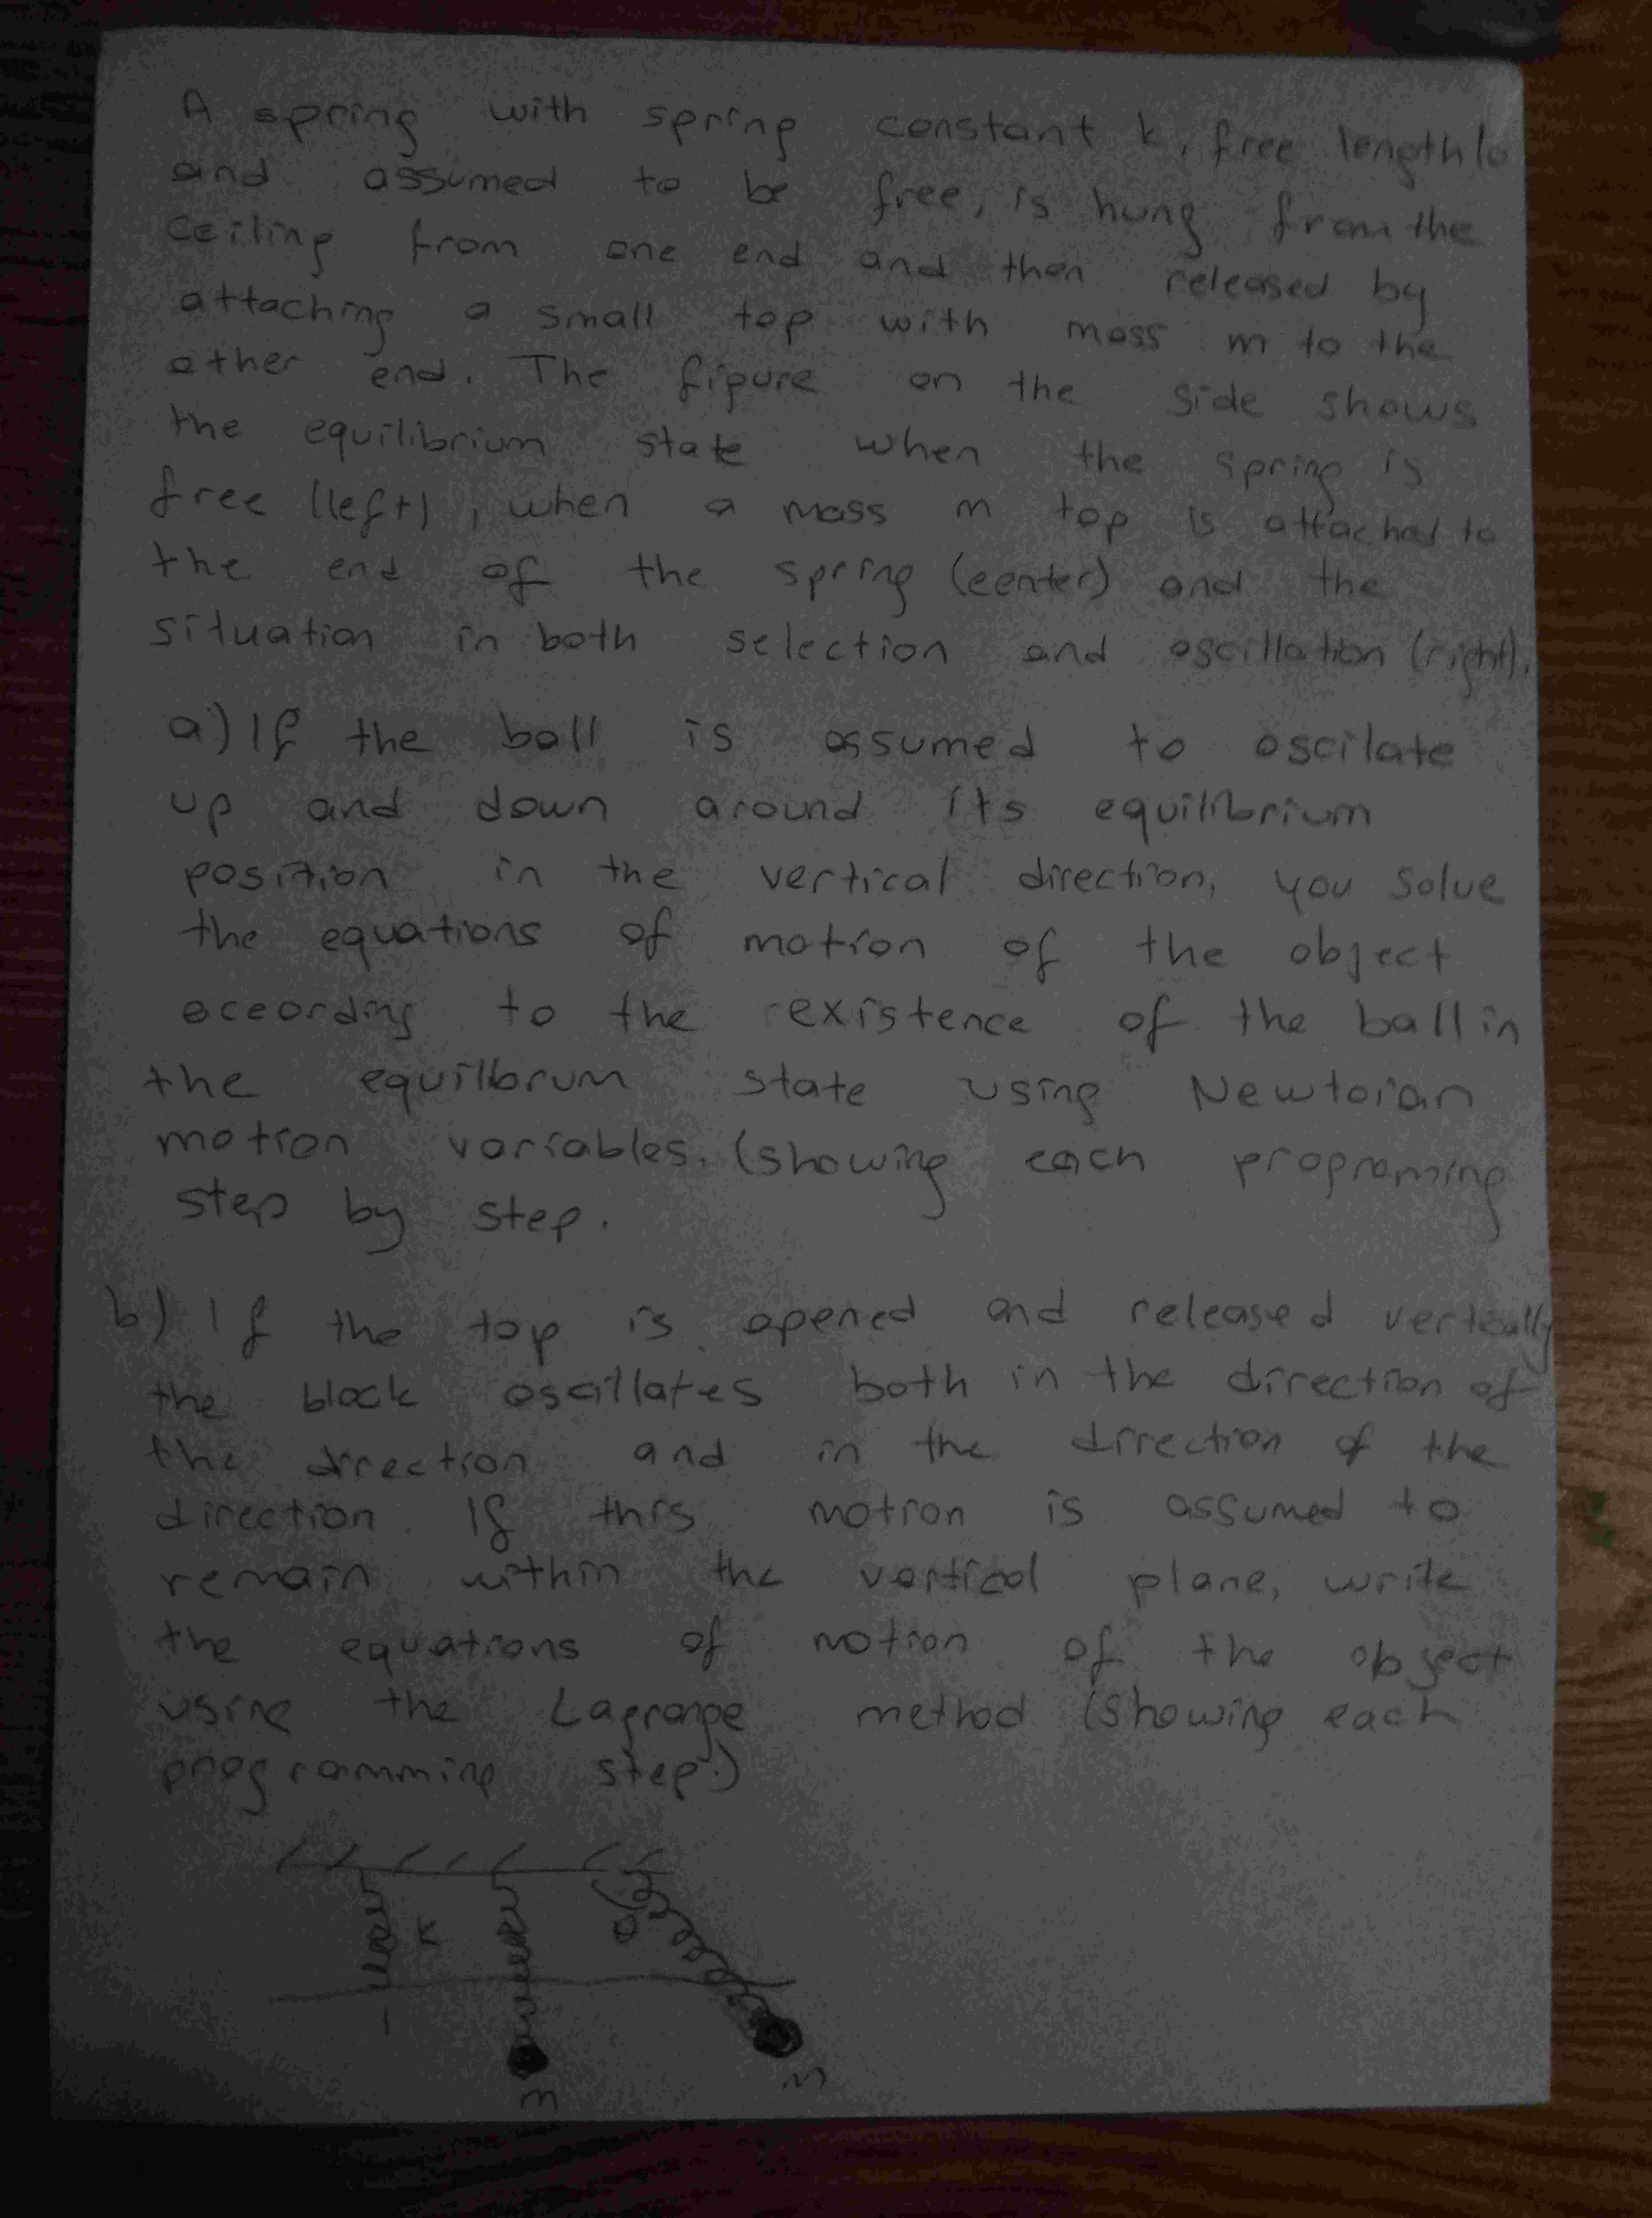 A spring with spring constant k, free length lo
and assumed to be free, is hung from the
ceiling from one end and then released by
attaching a small top with mass m to the
other end. The figure on the side shows
the equilibrium state when the spring is
free (left), when a mass m top is attached to
the end of the spring (center) and the
situation in both selection and oscillation (right).
a) If the ball is assumed to oscilate
up and down around its equilibrium
position in the vertical direction, you solve
the equations of motion of the object
according to the existence of the ball in
the equilibrum state using Newtoian
motion variables. (showing each programing
step by step.
b) If the top is opened and released vertically
the block oscillates both in the direction of
the direction and in the direction of the
direction. If this motion is assumed to
remain within the vertical plane, write
the equations of motion of the object
using the Lagrange method (showing each
programming step.)
K
θ
m
m